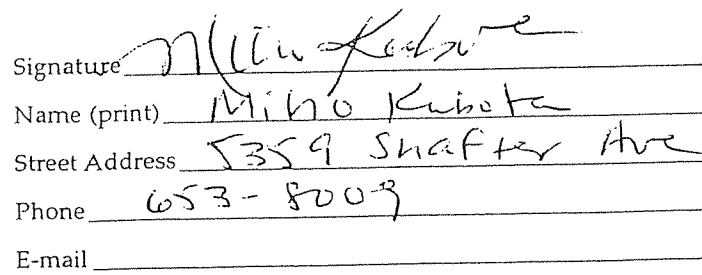 Signature Miho Kubota
Name (print) Miho Kubota
Street Address 5359 Shafter Ave
Phone 653-8009
E-mail